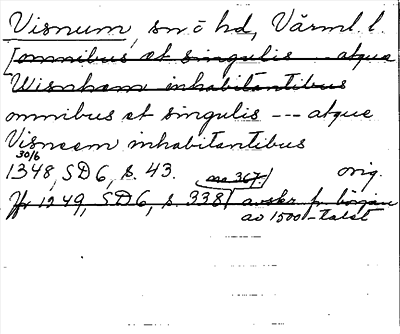 Visnum, sn o hd, Värml. l.
[omnibus et singulis --- atque
Wisnhem inhabitantibus
omnibus et singulis --- atque
Visneem inhabitantibus
30/6
1348, SD 6, s. 43. no 367. orig.
Jfr 1249, SD 6, s. 338] avskr. fr. början
av 1500-talet